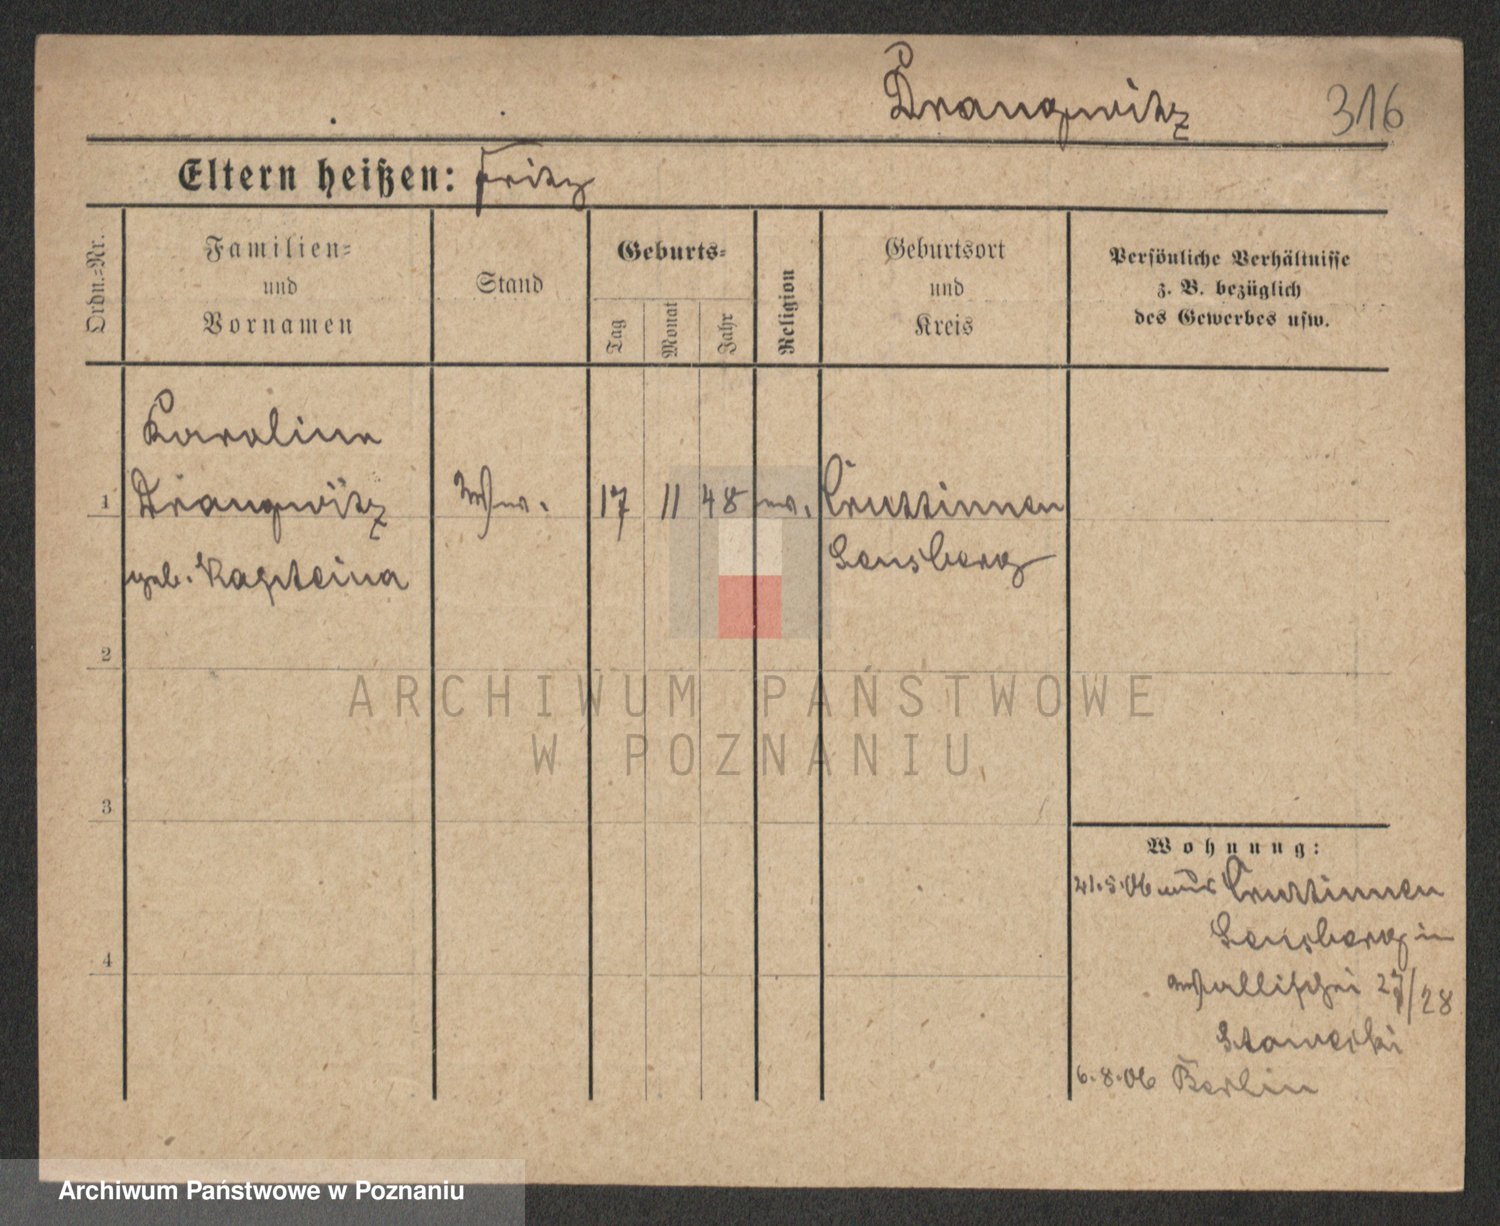 Drangwitz 316
Eltern heißen: Fritz
Ordn.-Nr.
Familien-
und
Vornamen
Stand
Geburts-
Tag
Monat
Jahr
Religion
Geburtsort
und
Kreis
Persönliche Verhältnisse
z. B. bezüglich
des Gewerbes usw.
Karoline
1 Drangwitz Ww. 17 11 48 ev. Cruttinnen
geb. Sensberg
2
ARCHIWUM PAŃSTWOWE
W POZNANIU
3
4
Wohnung:
21.5.06 aus Cruttinnen
Sensberg in
Wallischei 27/28
6.8.06 Berlin
Archiwum Państwowe w Poznaniu